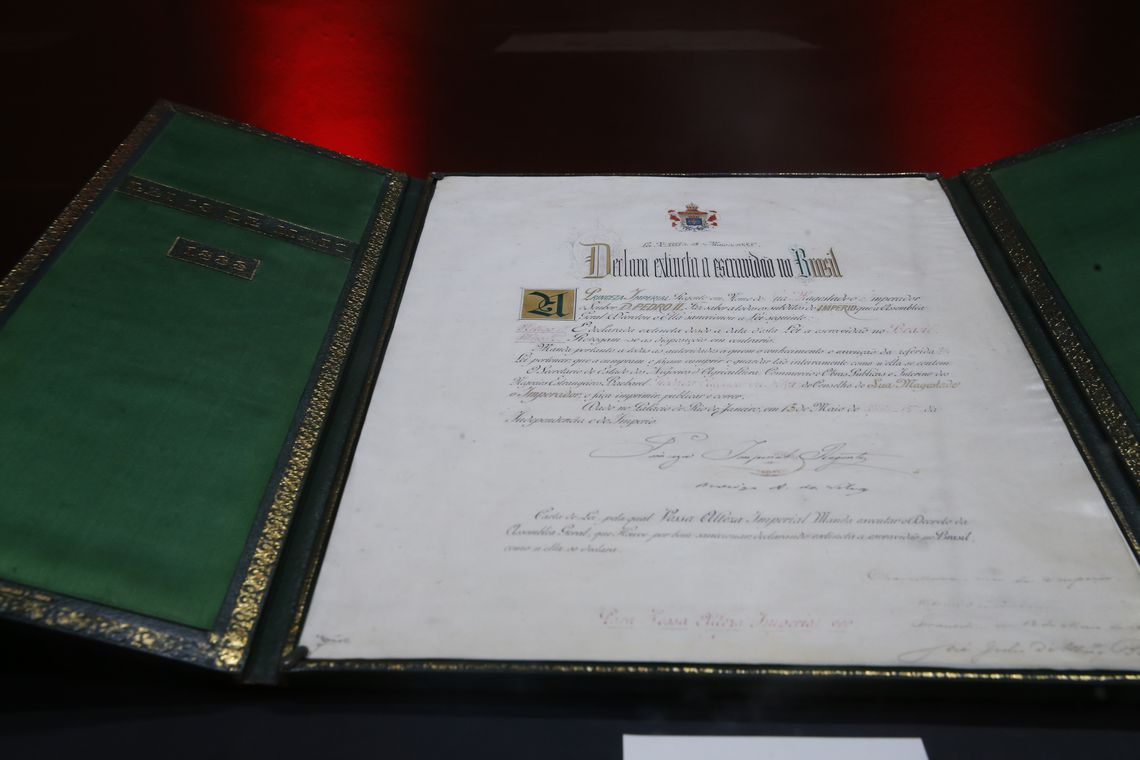 LEI 13 DE MAIO
1888
Declara extincta a escravidão no Brasil
A PRINCEZA IMPERIAL Regente em Nome de Sua Magestade o Imperador
o Senhor D. PEDRO II, Faz saber a todos os subditos do IMPERIO que a Assembléa
Geral Decretou e Ella sanccionou a Lei seguinte:
Artigo 1º É declarada extincta desde a data desta Lei a escravidão no Brasil.
Revogam-se as disposições em contrario.
Manda portanto a todas as autoridades a quem o conhecimento e execução da referida
Lei pertencer, que a cumpram e façam cumprir e guardar tão inteiramente como n'ella se contem
O Secretario de Estado dos Negocios d'Agricultura, Commercio e Obras Publicas e Interino dos
Negocios Estrangeiros, Bacharel do Conselho de Sua Magestade
o Imperador, o faça imprimir, publicar e correr.
Dado no Palacio do Rio de Janeiro, em 13 de Maio de da
Independencia e do Imperio.
Princeza Imperial Regente
Rodrigo A. da Silva
Carta de Lei, pela qual Vossa Alteza Imperial Manda executar o Decreto da
Assembléa Geral, que Houve por bem sanccionar declarando extincta a escravidão no Brasil
como n'ella se declara.
Para Vossa Alteza Imperial ver